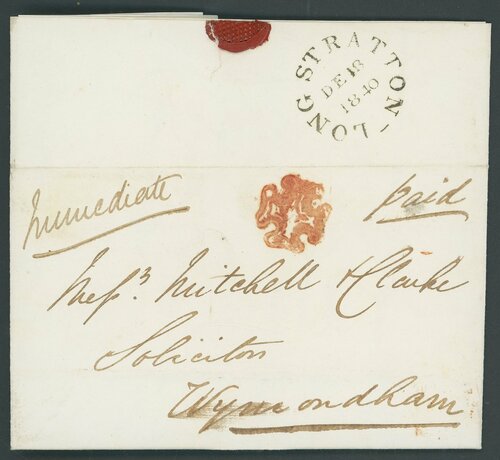 LONG-STRATTON
DE 18
1840
Immediate
paid
Messrs. Mitchell & Clarke
Solicitors
Wymondham